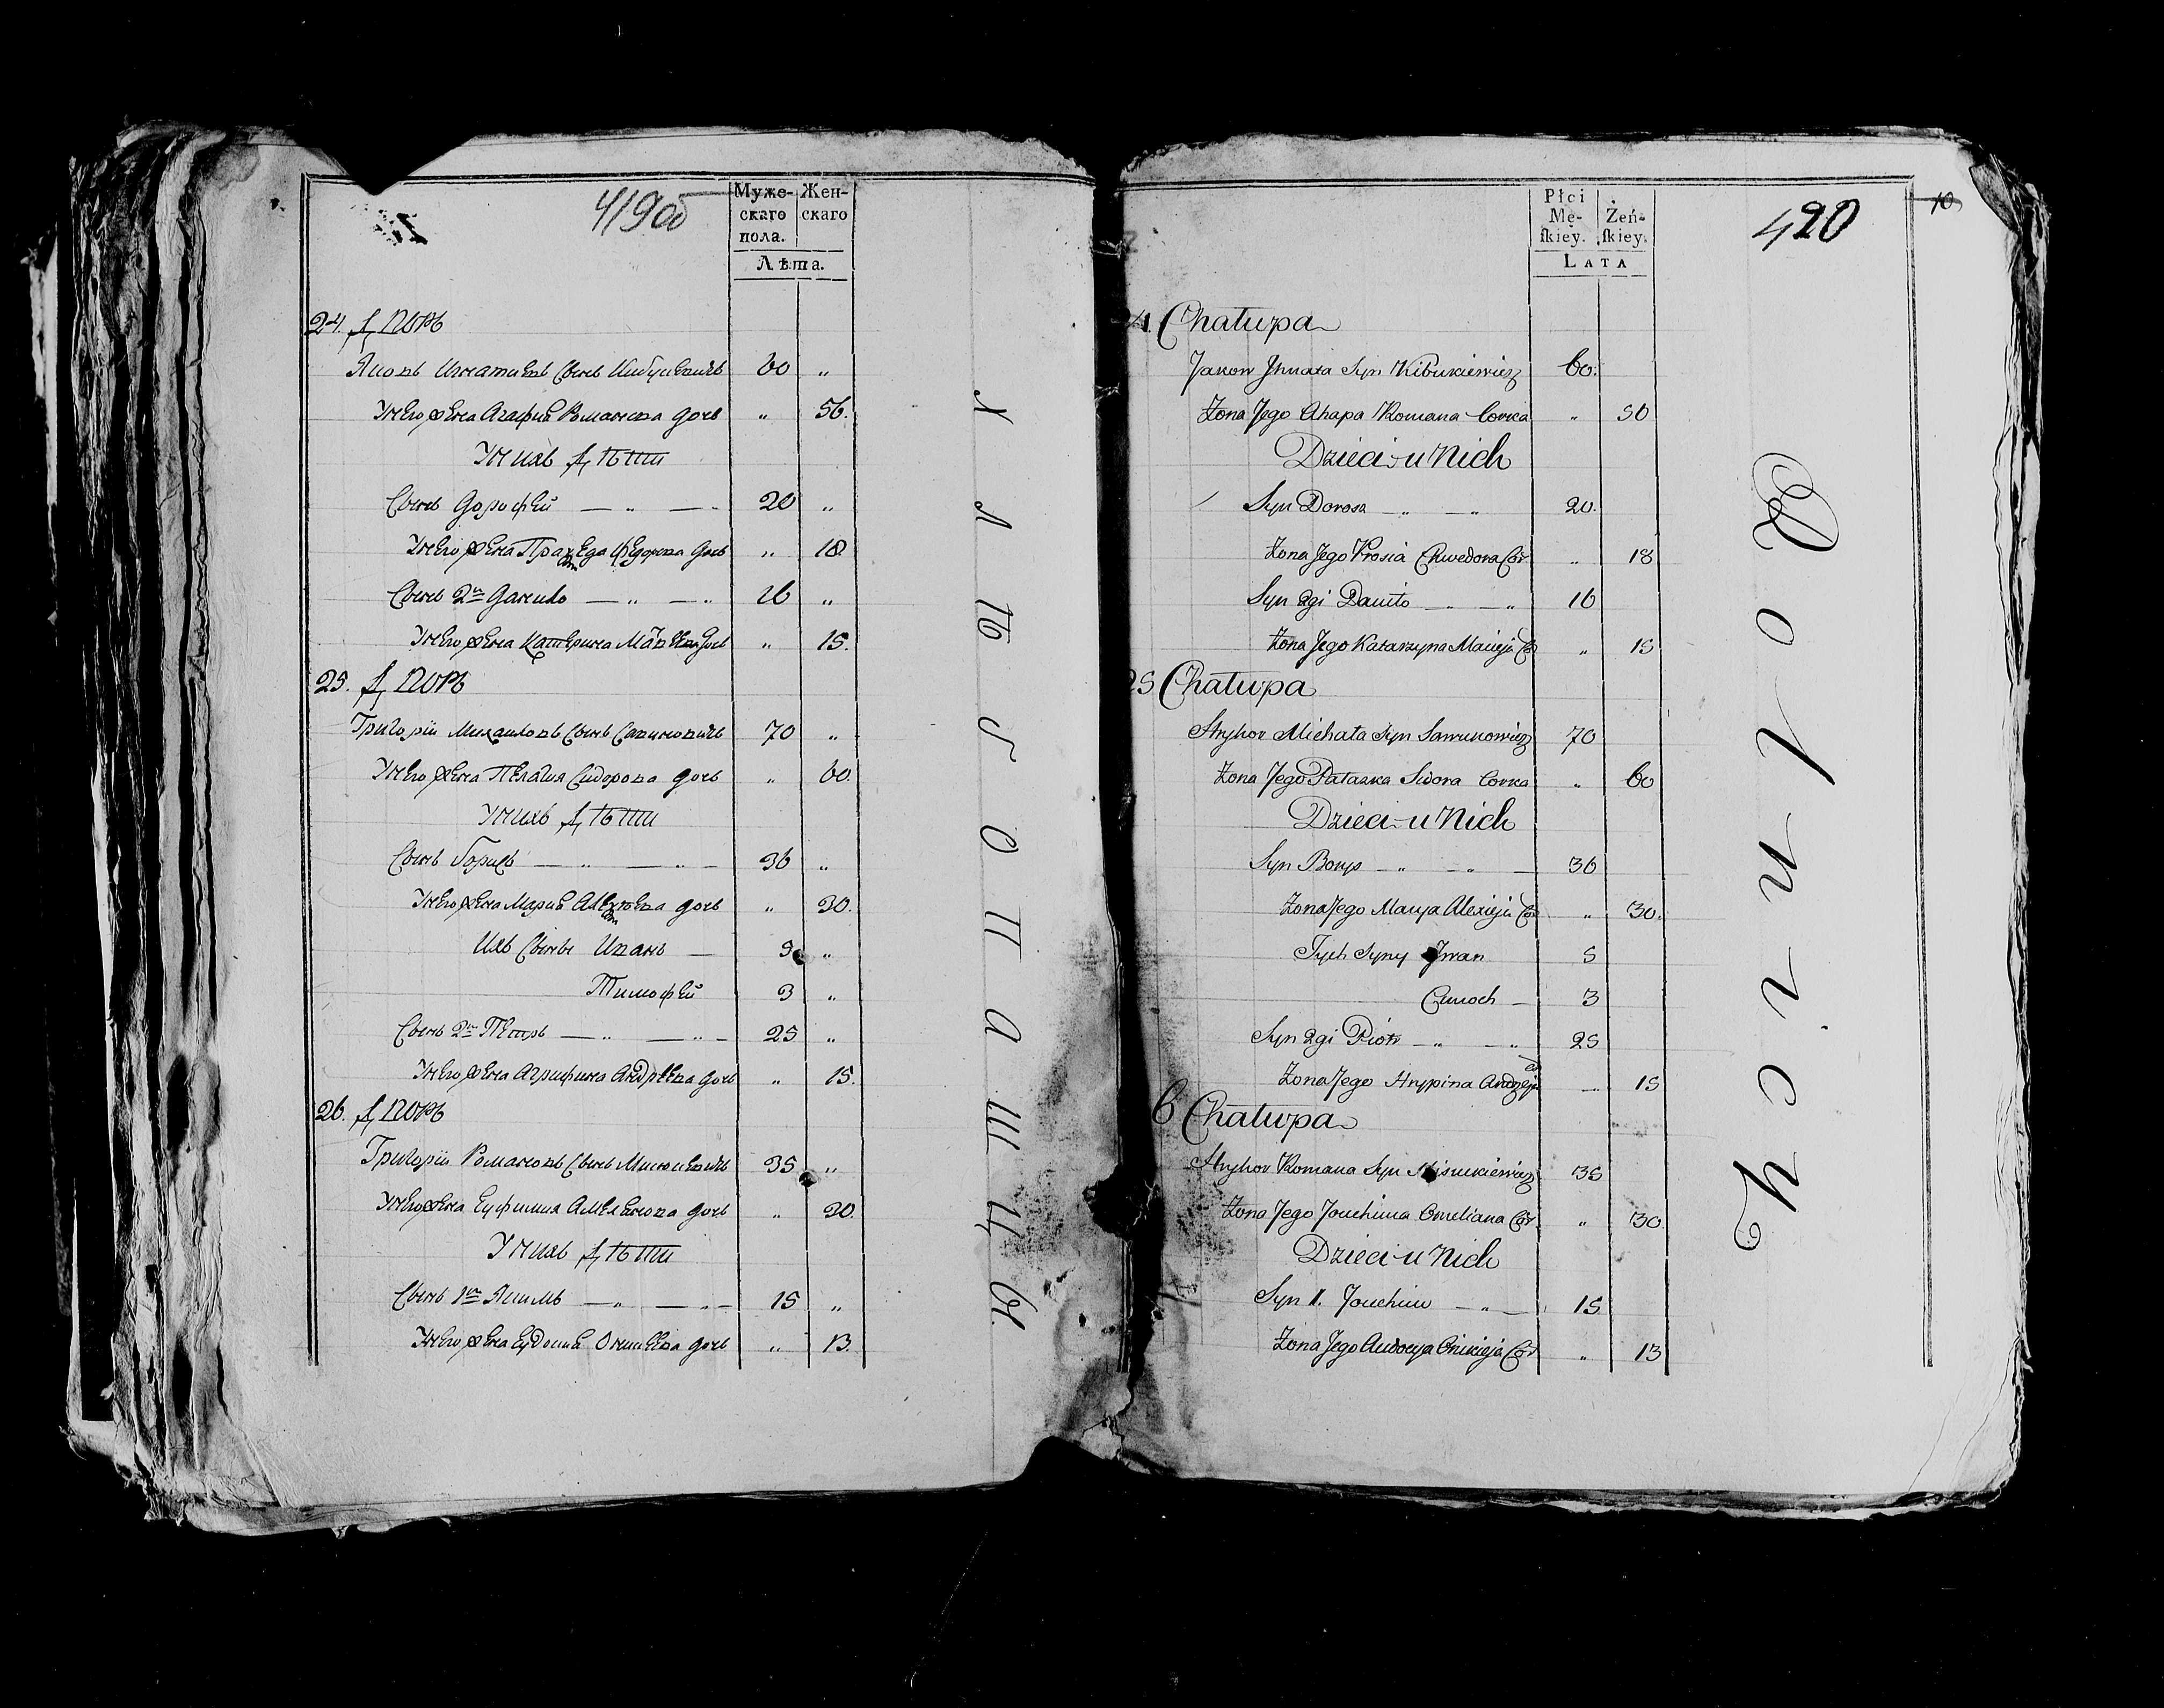 419об
Муже-
скаго
пола.
Жен-
скаго
Лѣта.
24. Дворъ
Яковъ Игнатиевъ Сынъ Кибукевичь 60 „
У него жена Агафия Романова дочь „ 56.
У нихъ Дѣти
Сынъ Дорофей — „ — 20 „
У него жена Федорова дочь „ 18.
Сынъ 2й Данило — „ — „ 16 „
У него жена Катерина дочь „ 15.
25. Дворъ
Григорiи Михаиловъ Сынъ Савиновичь 70 „
У него жена Пелагия Сидорова дочь „ 60.
У нихъ Дѣти
Сынъ Борисъ — „ — „ — 36 „
У него жена Мария дочь „ 30.
Ихъ Сыны Иванъ — „
Тимофей 3 „
Сынъ 2й Петръ — „ — „ — 25 „
У него жена Агрипина Андрѣева дочь „ 15.
26. Дворъ
Григорiи Романовъ Сынъ Мисюкевичь 35 „
У него жена Еуфимия Амеленова дочь „ 20.
У нихъ Дѣти
Сынъ 1й Якимъ — „ — „ — 15 „
У него жена Еудокия дочь „ 13.
Хлѣбопашцы.
420
10
Płci
Mę-
ſkiey.
Żeń-
ſkiey.
LATA
Chałupa
Jakow Ihnata Syn Kibukiewicz 60.
Zona Jego Ahapa Romana Corka „ 56
Dzieci u Nich
Syn Dorosz — „ — „ 20.
Zona Jego Prosia Chwedora Cor „ 18
Syn 2gi Daniło — „ 16
Zona Jego Katarzyna Macieja Co „ 15
25 Chałupa
Hryhor Michała Syn Sawinowicz 70
Zona Jego Pałaszka Sidora Corka „ 60
Dzieci u Nich
Syn Borys — „ — „ — 36
Zona Jego Marya Alexieja Co „ 30.
Tych Syny Iwan 5
Cimoch — 3
Syn 2gi Piotr — „ — „ 25
Zona Jego Hrypina Andrzeja — 15
6 Chałupa
Hryhor Romana Syn Misiukiewicz 35
Zona Jego Jouchima Omeliana Cor „ 30.
Dzieci u Nich
Syn 1. Jouchim — „ — 15
Zona Jego Audocya Onikieja Cor „ 13
Rolnicy